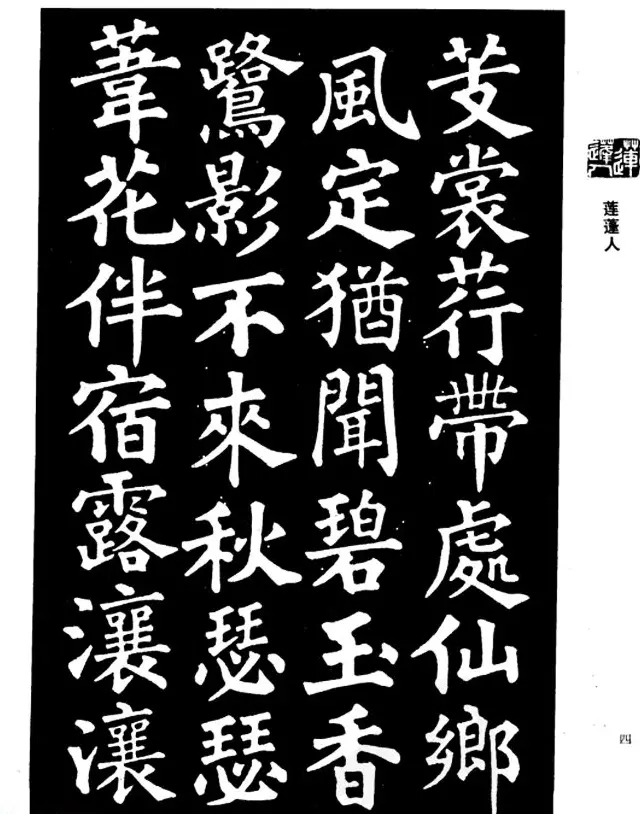 芰裳荇帶處仙鄉
風定猶聞碧玉香
鷺影不來秋瑟瑟
葦花伴宿露瀼瀼
莲蓬人
四